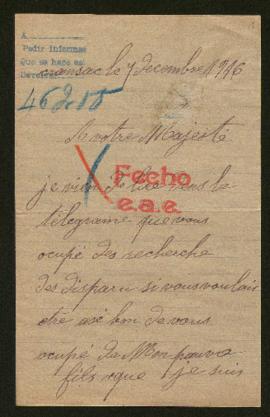 A
Pedir informes
Que se hace en
Devolver
le 7 decembre 1916
46215
A votre Majesté
Fecho
e.a.e.
je viens de lire dans le
télegrame que vous
ocupé des recherche
des disparu si vous voulais
etre asé bon de vous
ocupé de Mon pauvre
fils que je suis